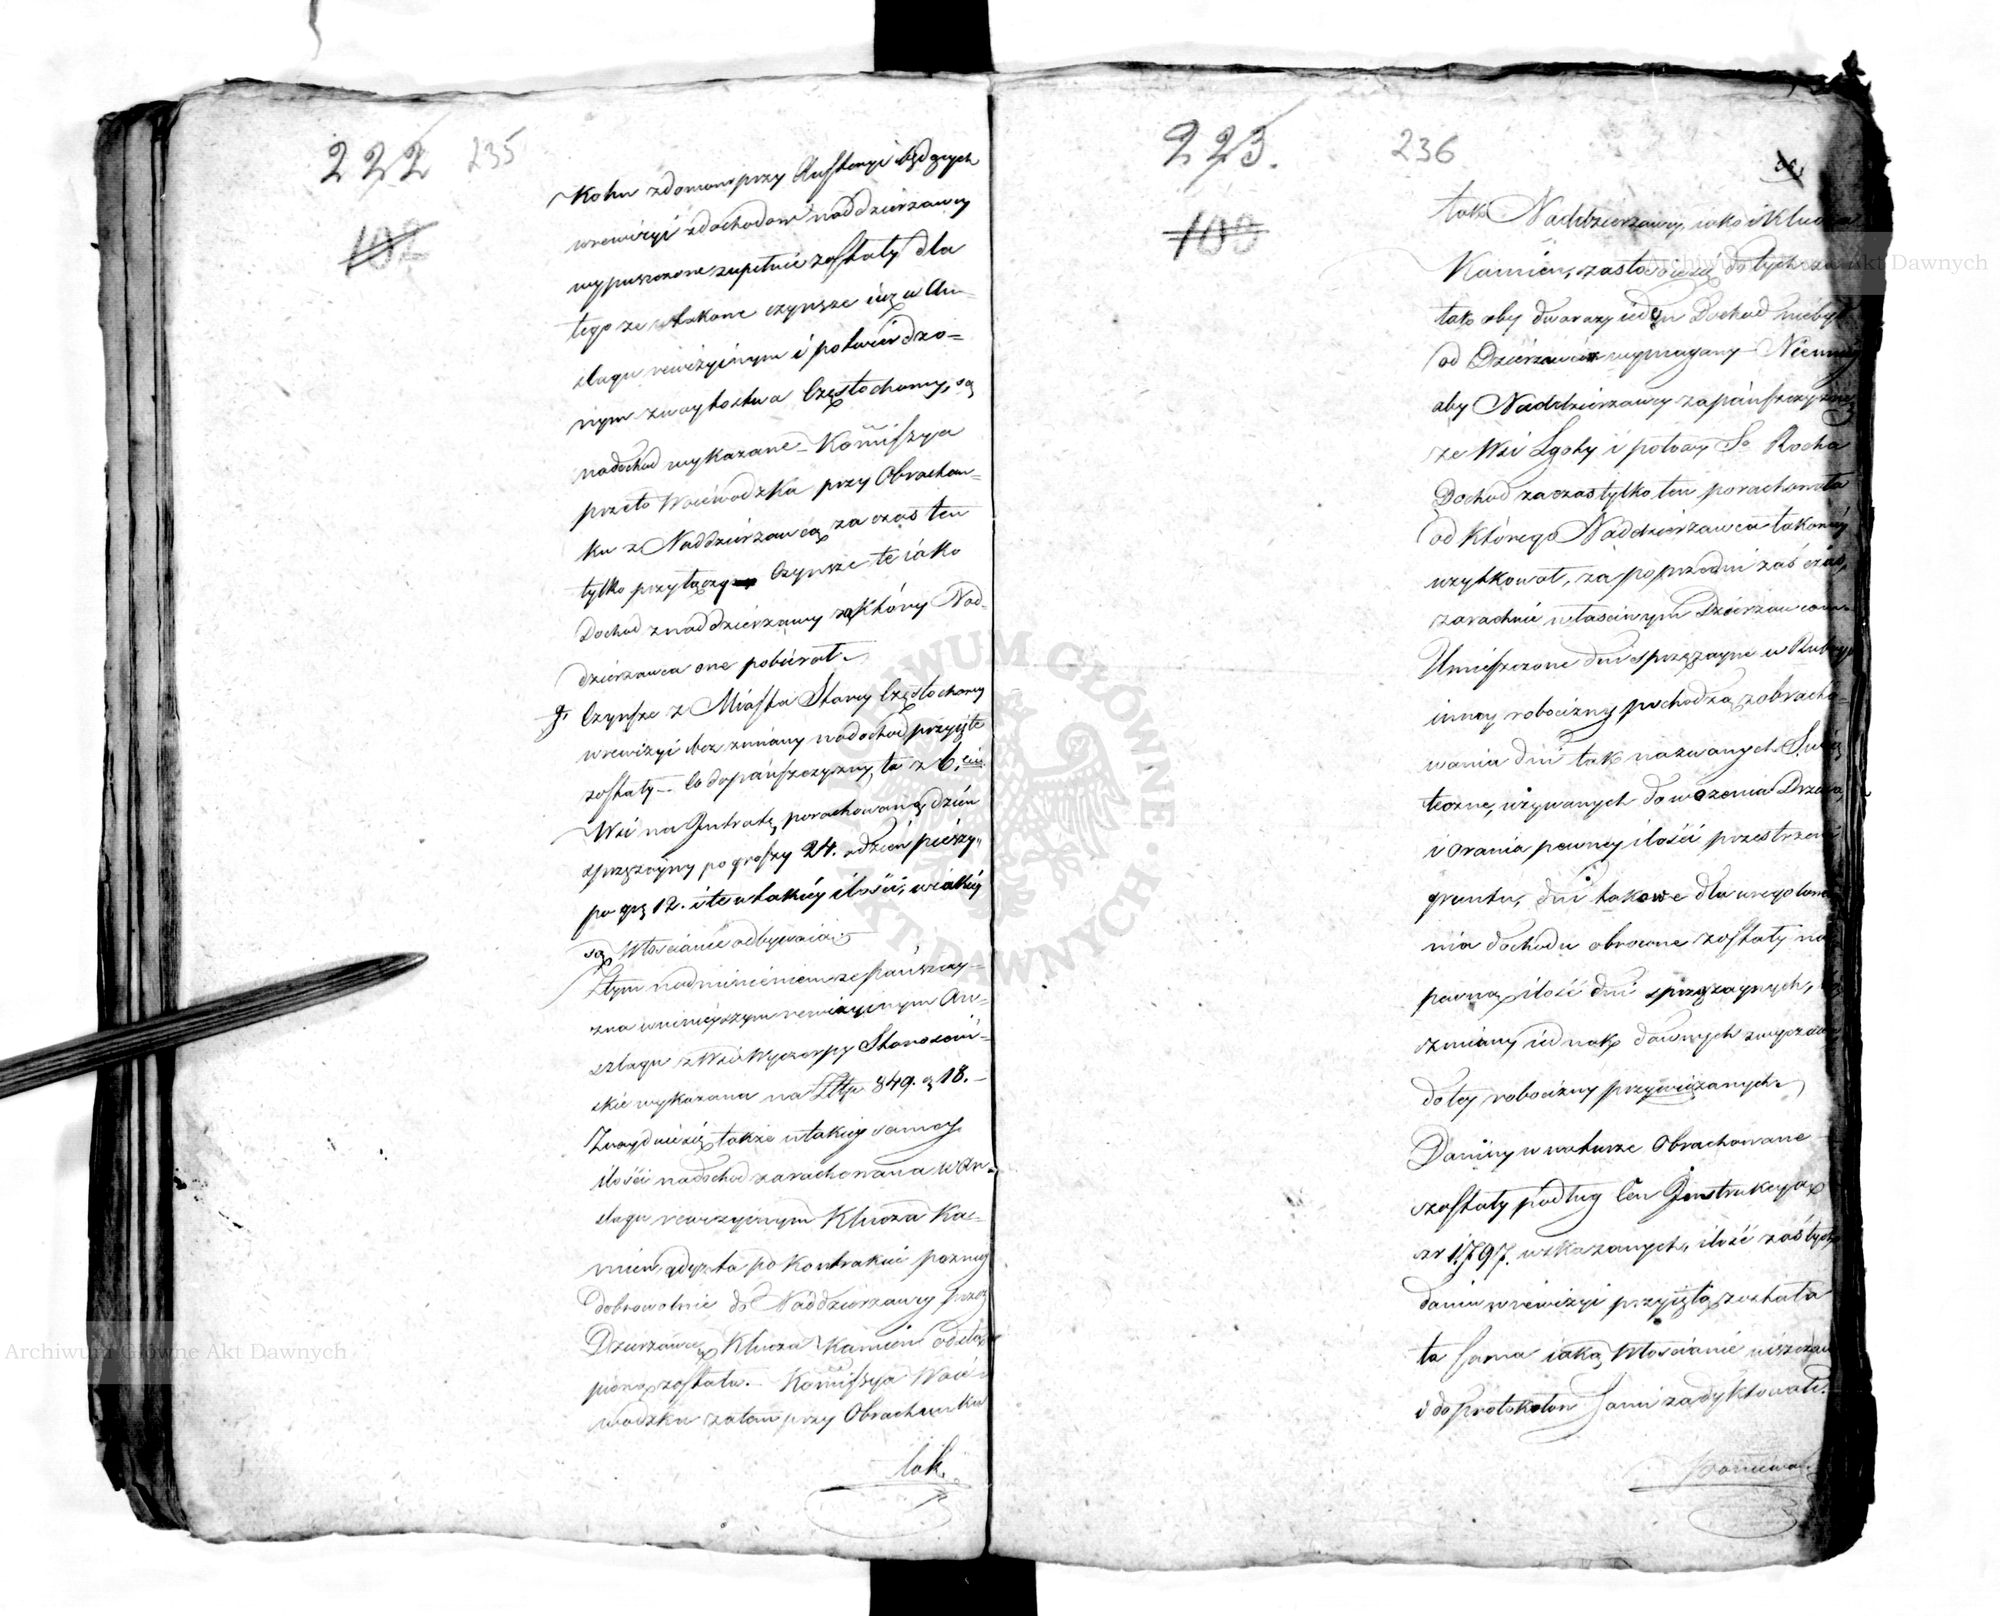 222 235
102
Roku z domow przy Austeryi będących
w rewizyi z dochodow naddzierzawy
wypuszczone zupełnie zostały dla
tego ze takowe czynsze iuz w An=
szlagu rewizyinym i potwierdzo=
nym z Woytostwa Częstochowy, są
na dochod wykazane – Kom̃issya
przeto Woiewodzka przy Obrachun=
ku z Naddzierzawcą za czas ten
tylko przyłączy Czynsze te iako
Dochod z naddzierzawy za który Nad=
dzierzawca one pobierał.
g, Czynsze z Miasta Starey Częstochowy
w rewizyi bez zmiany na dochod przyięte
zostały – Co do pańszczyzny, ta z 6,ciu
Wsi na Intratę porachowaną dzień
sprzęzayny po groszy 24. a dzień pieszy
po gr 12. i to w takiey ilości, w iakiey
są Włoscianie odbywaią.
Z tym nadmienieniem ze Pańszczy=
zna w ninieyszym rewizyinym An=
szlagu z Wsi Wyczerpy Starościń=
skie wykazana na Złtp 849. g 18. –
Znayduie się także w takiey samey
ilości na dochod zarachowana w An=
szlagu rewizyinym Klucza Ka=
mień, gdy ta po Kontrakcie pozniey
dobrowolnie do Naddzierzawy przez
Dzierzawcę Klucza Kamień odstą=
piona została. – Kom̃issya Woie=
wodzka zatem przy Obrachunku
tak
223. 236
103
tak Naddzierzawcy, iako i Klucza
Kamień, zastosuie się do tych za
tak aby dwa razy ieden Dochod niebył
od Dzierzawców wymagany – Niemniey
aby Naddzierzawcy za pańszczyznę
ze Wsi Lgoty i połowy S. Rocha
Dochod za czas tylko ten porachowała
od którego Naddzierzawca takowey
uzytkował, za poprzedni zaś czas,
zarachuie własciwym Dzierzawcom.
Umieszczone dni sprzęzayne w Rubryce
inney robocizny pochodzą z obracho=
wania dni tak nazwanych Swią
teczne, uzywanych do wozenia Drzewa,
i orania pewney ilości przestrzeni
gruntu, dni takowe dla uregulowa
nia dochodu obrocone zostały na
pewną ilość dni sprzęzaynych,
zmiany iednak dawnych zwyczaiow
do tey robocizny przywiązanych.
Daniny w naturze Obrachowane
zostały podług Cen Instrukcyą
zr 1797. wskazanych, ilość zaś tych
danin w rewizyi przyiętą została
ta sama iaką Włoscianie uiszczali
i do protokołow sami zadyktowali.
Poniewa
Archiwum Główne Akt Dawnych
Archiwum Główne Akt Dawnych
ARCHIWUM GŁÓWNE AKT DAWNYCH